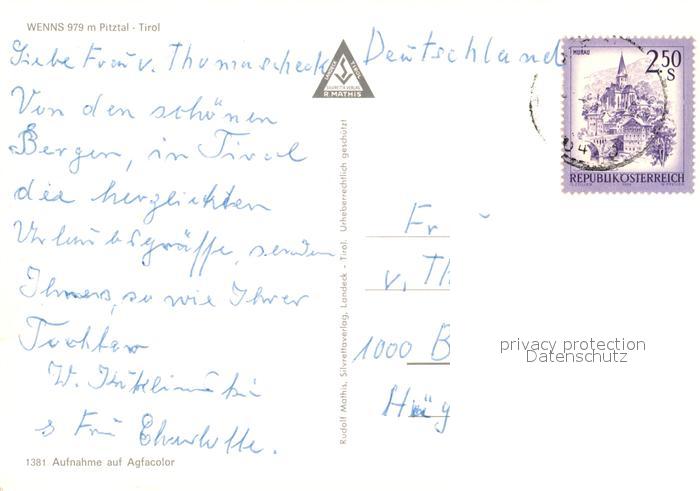 WENNS 979 m Pitztal - Tirol
Liebe Frau v. Thomascheck
Von den schönen
Bergen, in Tirol
die herzlichsten
Urlaubsgrüsse, senden
Ihnen, so wie Ihrer
Tochter
W.
Frau
1381 Aufnahme auf Agfacolor
LANDECK TIROL
SILVRETTA VERLAG
R. MATHIS
Rudolf Mathis, Silvrettaverlag, Landeck - Tirol. Urheberrechtlich geschützt
Deutschland
MURAU
2.50
S
REPUBLIK ÖSTERREICH
Fr
v. Th
1000 B
Häg
privacy protection
Datenschutz